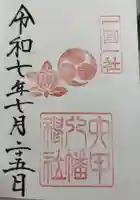 一国一社
六甲
八幡
神社
令和七年七月二十五日